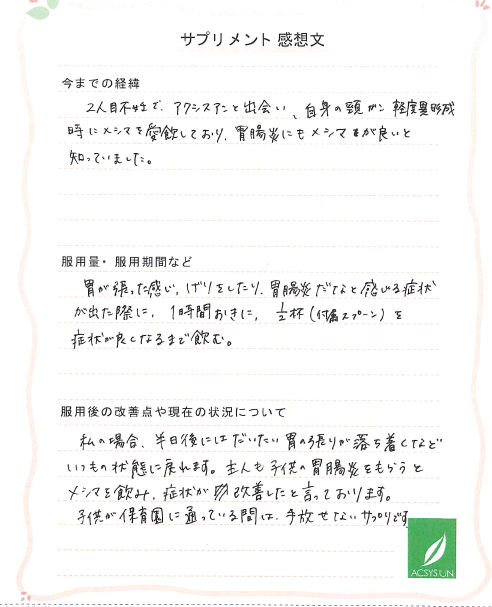 サプリメント 感想文
今までの経緯
2人目不妊で、アクシスアンと出会い、自身の頸ガン軽度異形成
時にメシマを愛飲しており、胃腸炎にもメシマが良いと
知っていました。
服用量・服用期間など
胃が張った感じ、げりをしたり、胃腸炎だなと感じる症状
が出た際に、1時間おきに、1/2杯(付属スプーン)を
症状が良くなるまで飲む。
服用後の改善点や現在の状況について
私の場合、半日後にはだいたい胃の張りが落ち着くなど
いつもの状態に戻れます。主人も子供の胃腸炎をもらうと
メシマを飲み、症状が改善したと言っております。
子供が保育園に通っている間は、手放せないサプリです
ACSYSUN